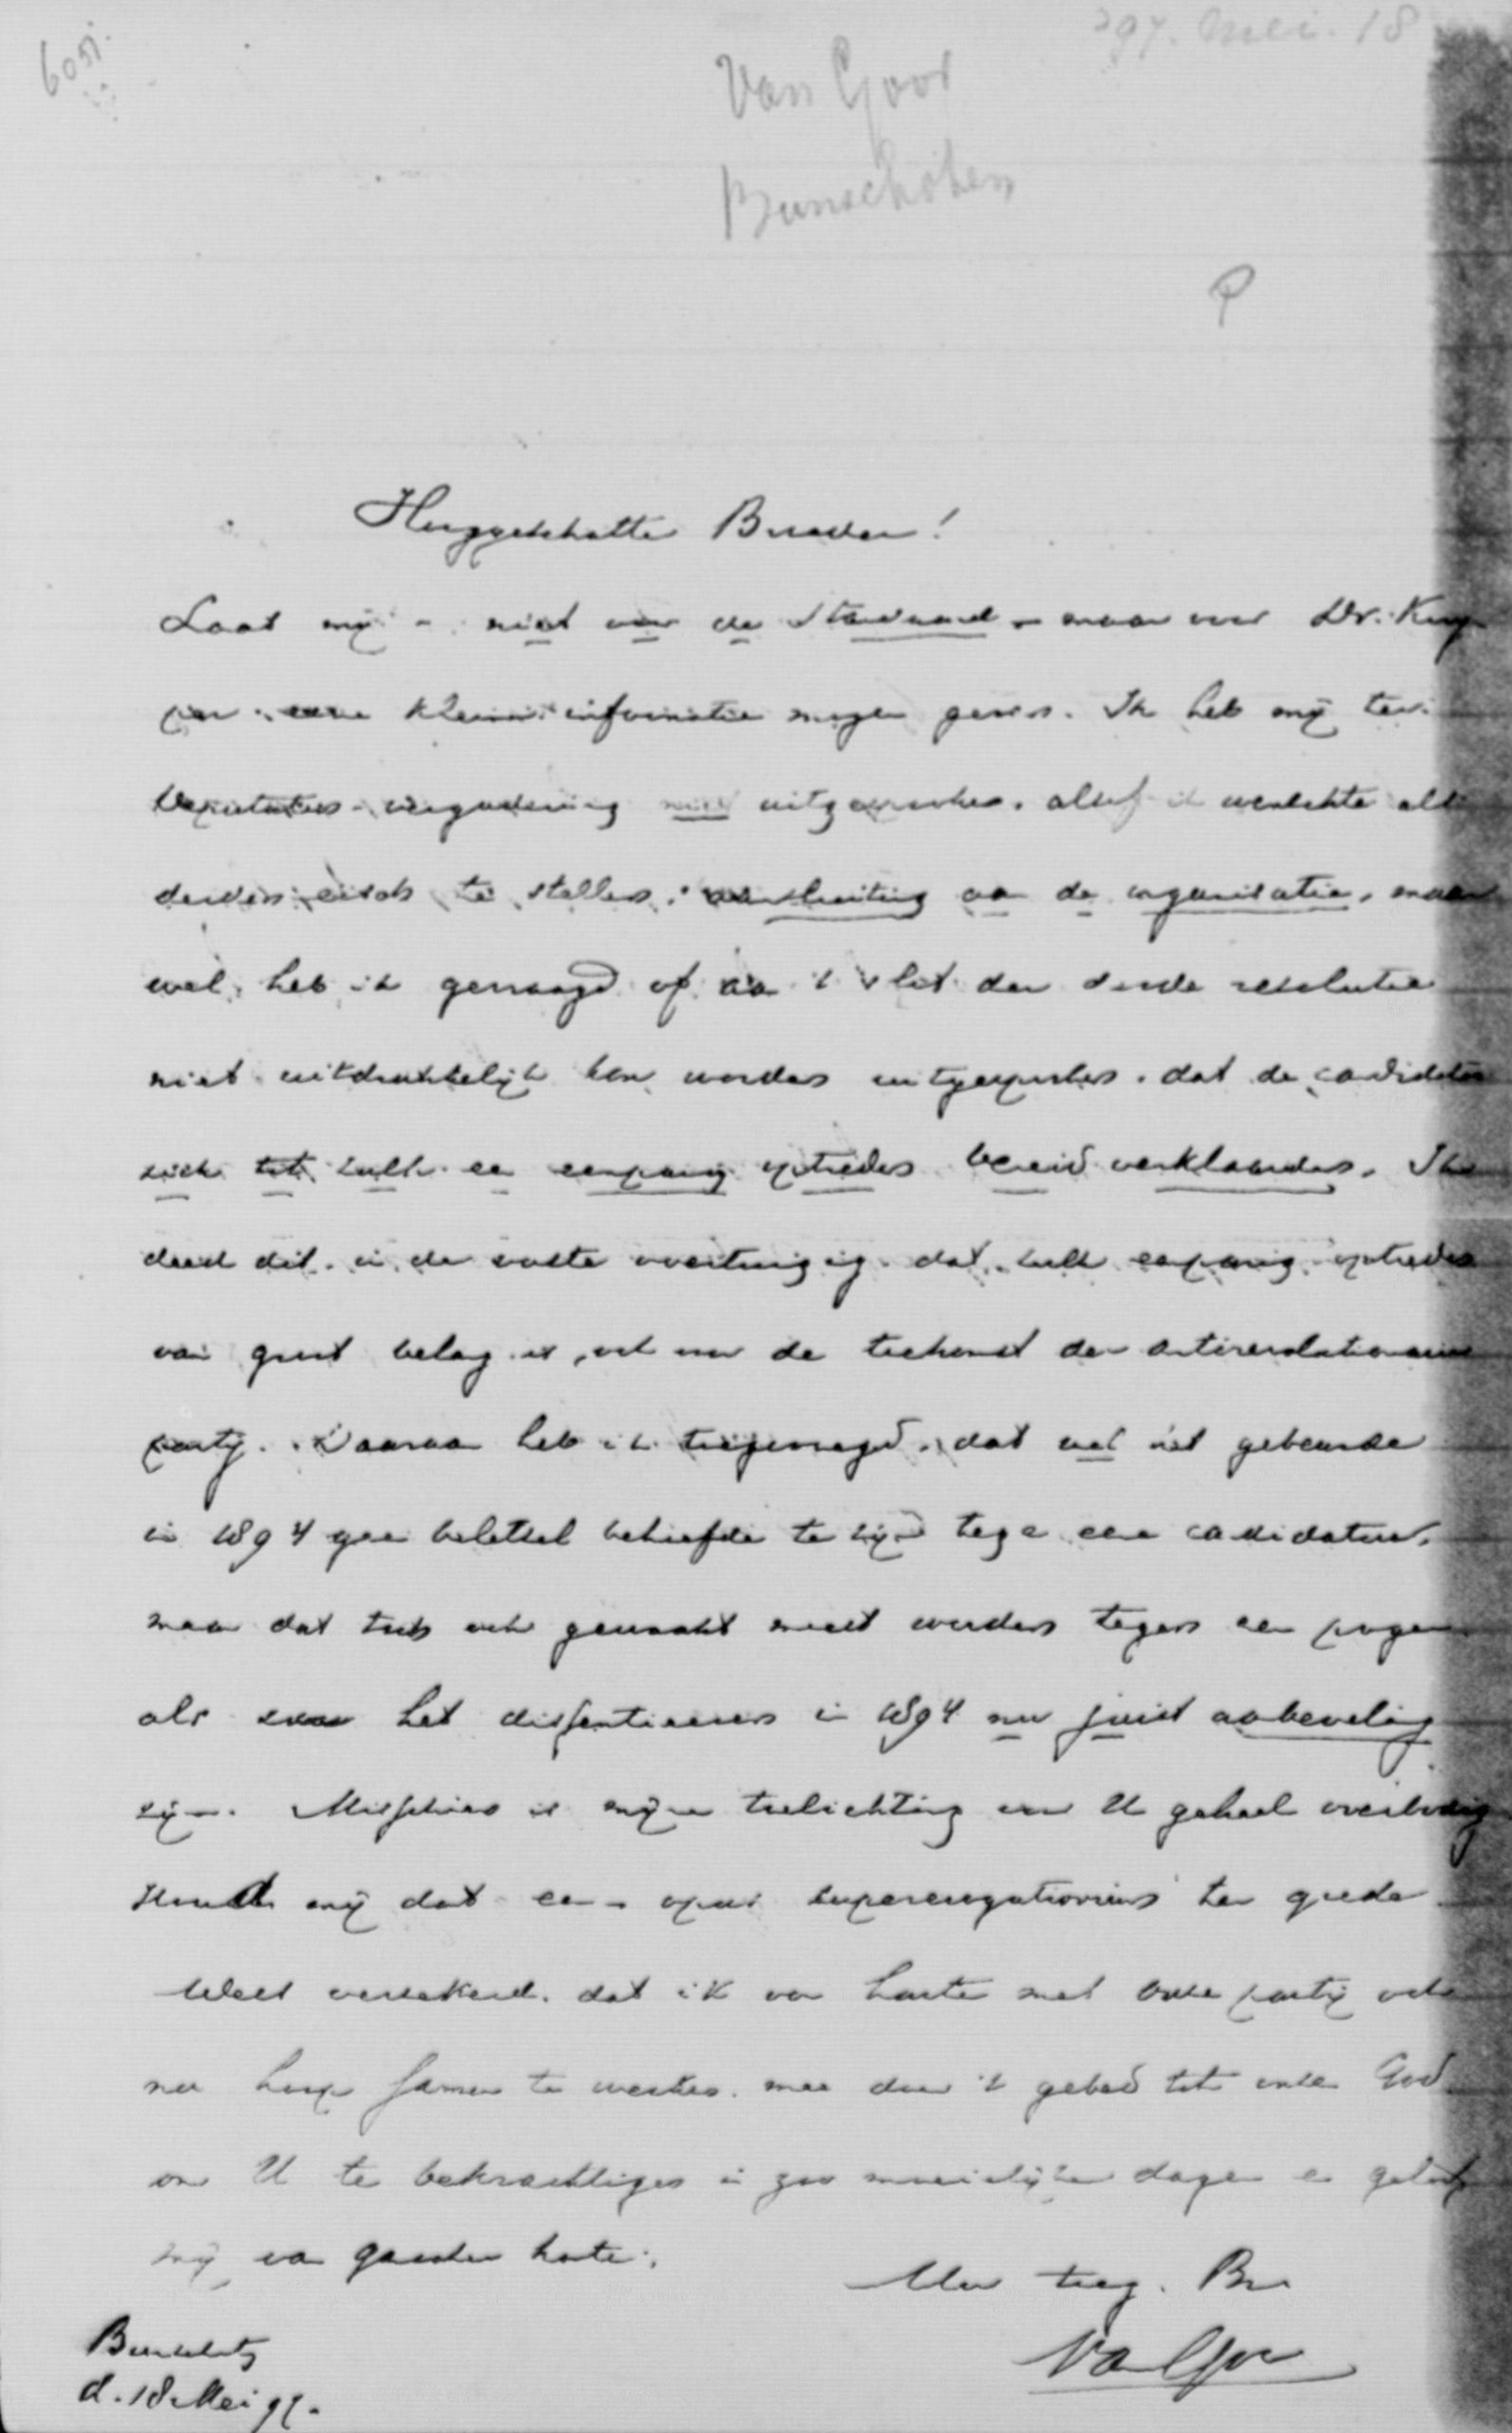 6051.
'97. Mei. 18
Van Goor
Bunschoten
Hooggeschatte Broeder!
Laat mij - niet voor de Standaard - maar voor Dr. Kuy-
per eene kleine informatie mogen geven. Ik heb mij ter
Deputaten-vergadering niet uitgesproken, alsof ik wenschte als
derden eisch te stellen: aansluiting aan de organisatie, maar
wel heb ik gevraagd of aan 't slot der derde resolutie
niet uitdrukkelijk kon worden uitgesproken, dat de candidaten
zich tot zulk een eenparig optreden bereid verklaarden. Ik
deed dit in de vaste overtuiging dat zulk eenparig optreden
van groot belang is, ook voor de toekomst der antirevolutionaire
partij. Daaraan heb ik toegevoegd, dat wat in't gebeurde
in 1894 geen beletsel behoefde te zijn tegen eene candidatuur,
maar dat toch ook gewaakt moet worden tegen een pogen
als zou het dissentieeren in 1894 nu juist aanbeveling
zijn. Misschien is mijne toelichting voor U geheel overbodig
Houd mij dat een opus supererogationis ten goede
Wees verzekerd, dat ik van harte met onze partij ook
nu hoop samen te werken, mee door 't gebed tot onzen God
om U te bekrachtigen in zoo moeielijke dagen en geloof
mij van ganscher harte:
Uw toeg. Br.
Van Goor
Bunschoten
d. 18 Mei 97.